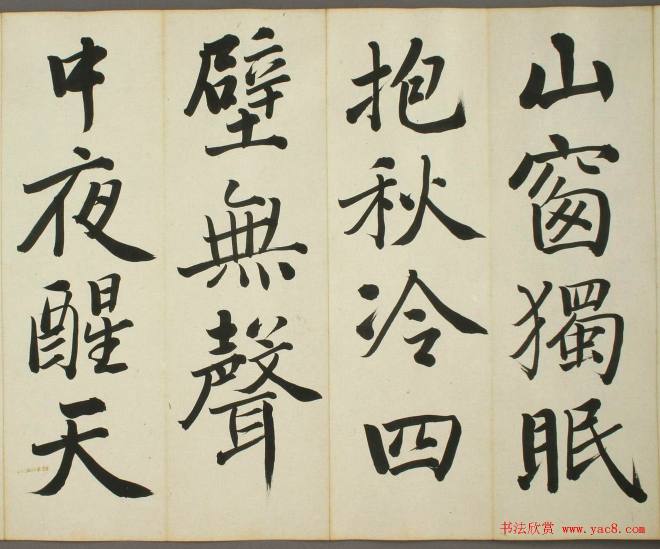 山窗獨眠
抱秋冷四
壁無聲
中夜醒天
书法欣赏
www.yac8.com